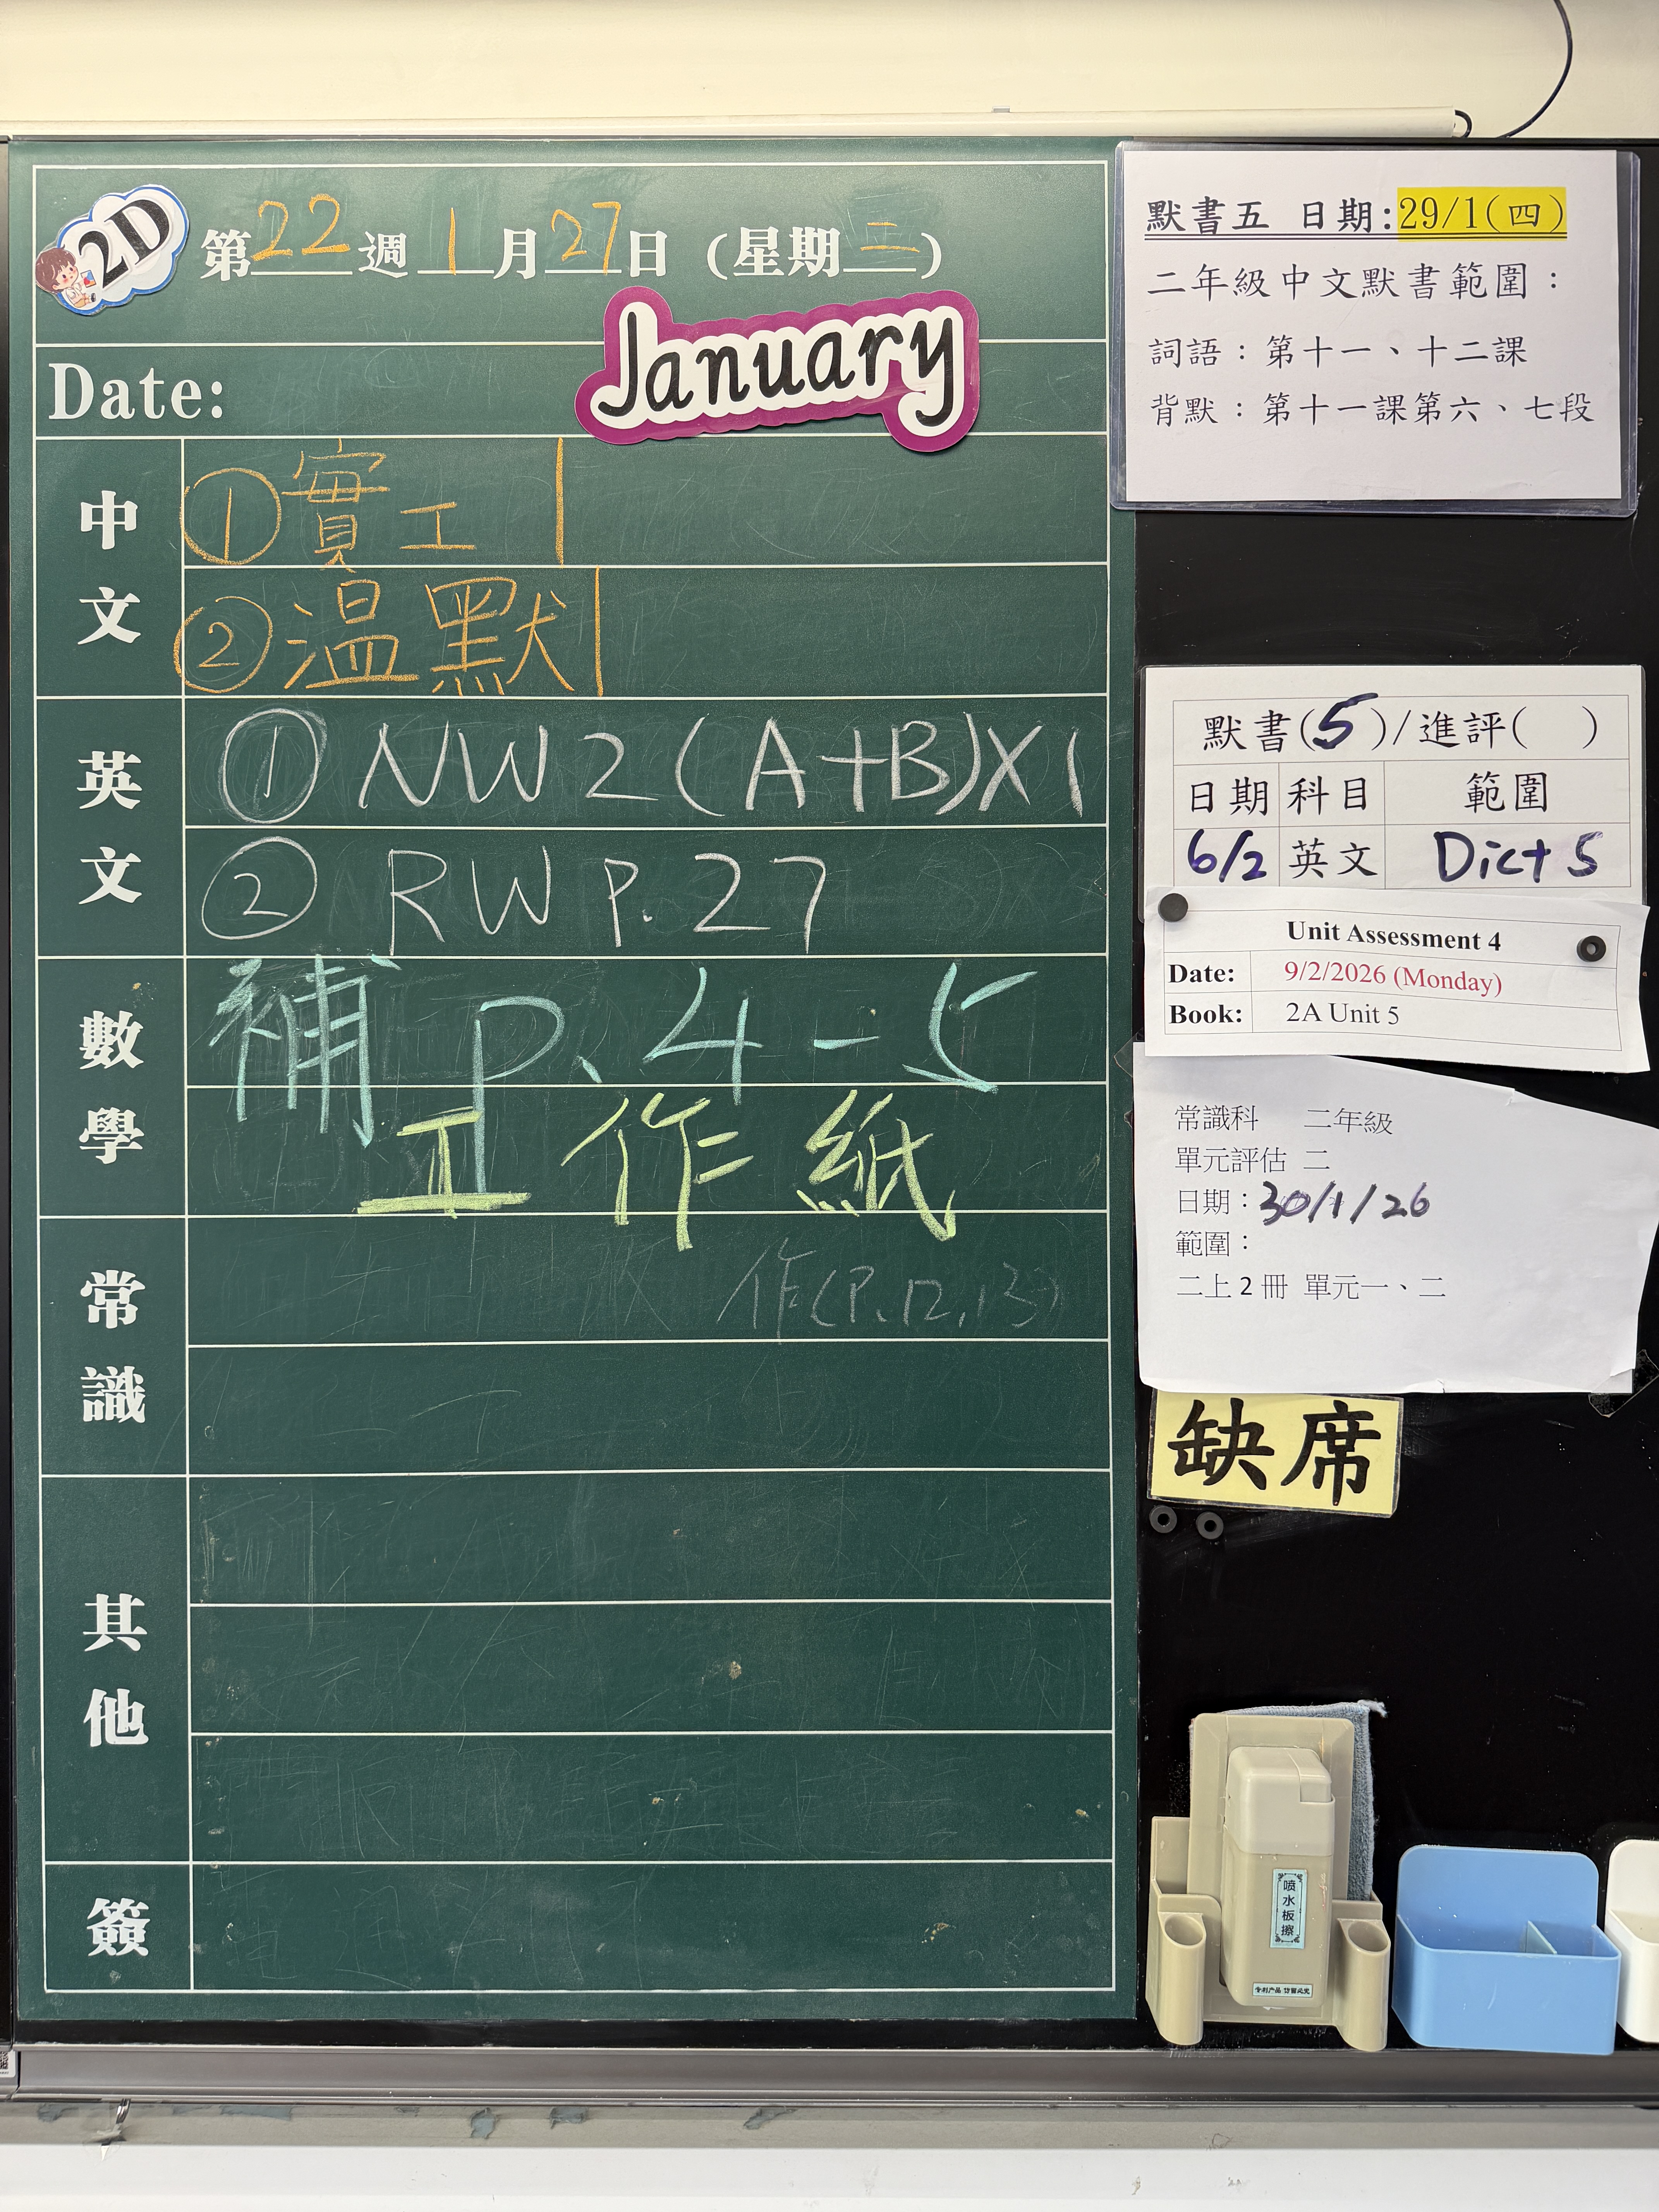 2D
第22週 1月27日 (星期二)
January
Date:
中文
①實工
②温默
英文
① NW2(A+B)X1
② RW P.27
數學
補 P.4-5
工作紙
常識
作(P.12,13)
其他
簽
默書五 日期:29/1(四)
二年級中文默書範圍：
詞語：第十一、十二課
背默：第十一課第六、七段
默書(5)/進評( )
日期 科目 範圍
6/2 英文 Dict 5
Unit Assessment 4
Date: 9/2/2026 (Monday)
Book: 2A Unit 5
常識科 二年級
單元評估 二
日期：30/1/26
範圍：
二上2冊 單元一、二
缺席
喷水板擦
专利产品 仿冒必究